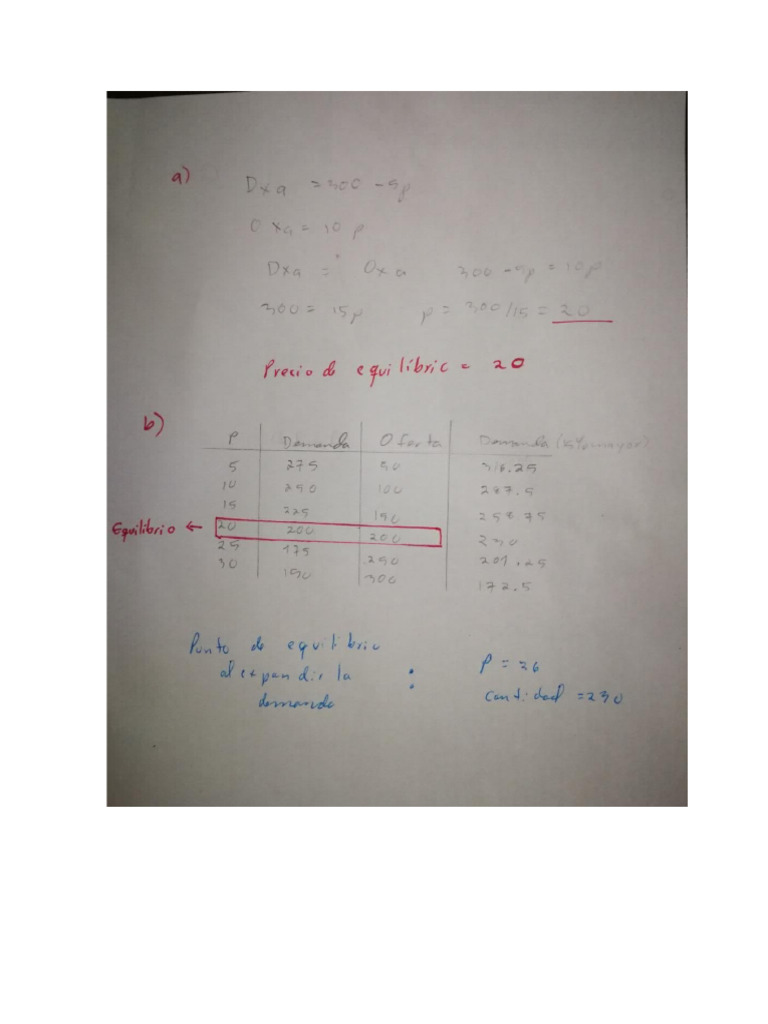 a)
Dxa = 300 - 5p
Oxa = 10 p
Dxa = Oxa 300 - 5p = 10p
300 = 15p p = 300/15 = 20
Precio de equilibric = 20
b)
P Demanda Oferta Demanda (15% mayor)
5 275 50 316.25
10 250 100 287.5
15 225 150 258.75
Equilibrio ← 20 200 200 230
25 175 250 201.25
30 150 300 172.5
Punto de equilibrio
al expandir la : P = 26
demanda cantidad = 230